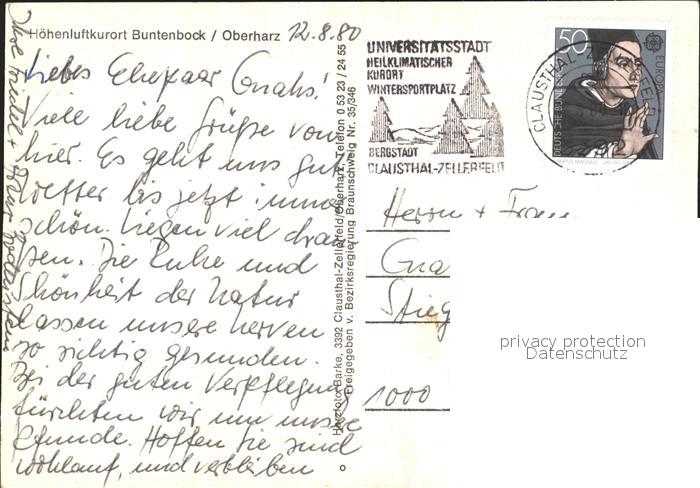 Höhenluftkurort Buntenbock / Oberharz
12.8.80
Liebes Ehepaar Gnahs!
Viele liebe Grüße von
hier. Es geht uns gut
Wetter bis jetzt immer
schön. Liegen viel drau
ßen. Die Ruhe und
Schönheit der Natur
lassen unsere Nerven
so richtig gesunden.
Bei der guten Verpflegung
fürchten wir um unsre
Pfunde. Hoffen Sie sind
wohlauf, und verbleiben
Ihre
Herzfoto Barke, 3392 Clausthal-Zellerfeld/Oberharz, Telefon 0 53 23 / 24 55
Freigegeben v. Bezirksregierung Braunschweig Nr. 35/346
UNIVERSITÄTSSTADT
HEILKLIMATISCHER
KURORT
WINTERSPORTPLATZ
BERGSTADT
CLAUSTHAL-ZELLERFELD
50
EUROPA
DEUTSCHE BUNDES
CLAUSTHAL
Herrn + Frau
Gna
Stieg
1000
privacy protection
Datenschutz